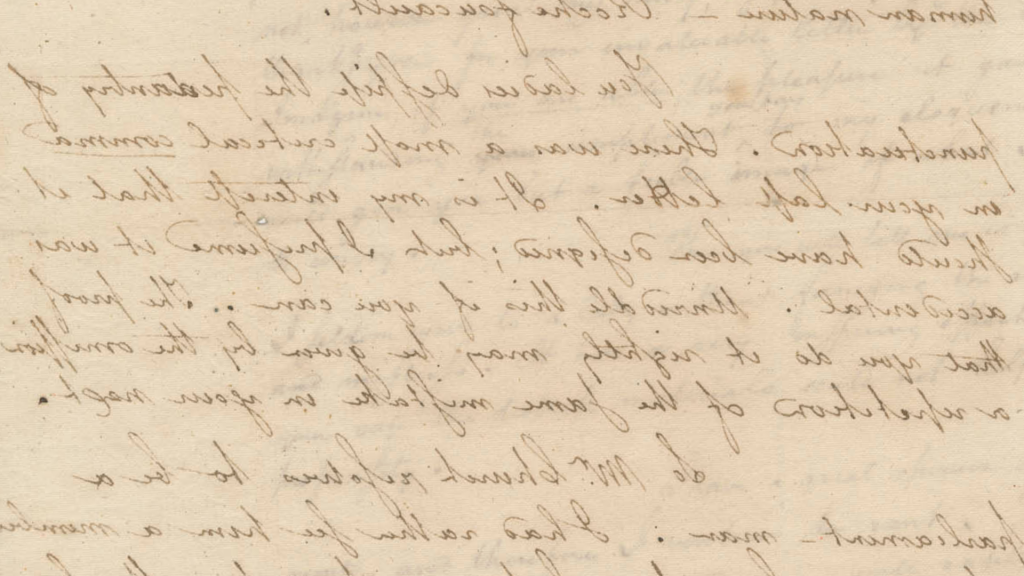 human nature – Rochefoucault.
You ladies despise the pedantry of
punctuation. There was a most critical comma
in your last letter. It is my interest that it
should have been designed; but I presume it was
accidental. Unriddle this if you can. The proof
that you do it rightly may be given by the omission
or repetition of the same mistake in your next.
So Mr. Church resolves to be a
parliament-man. I had rather see him a member